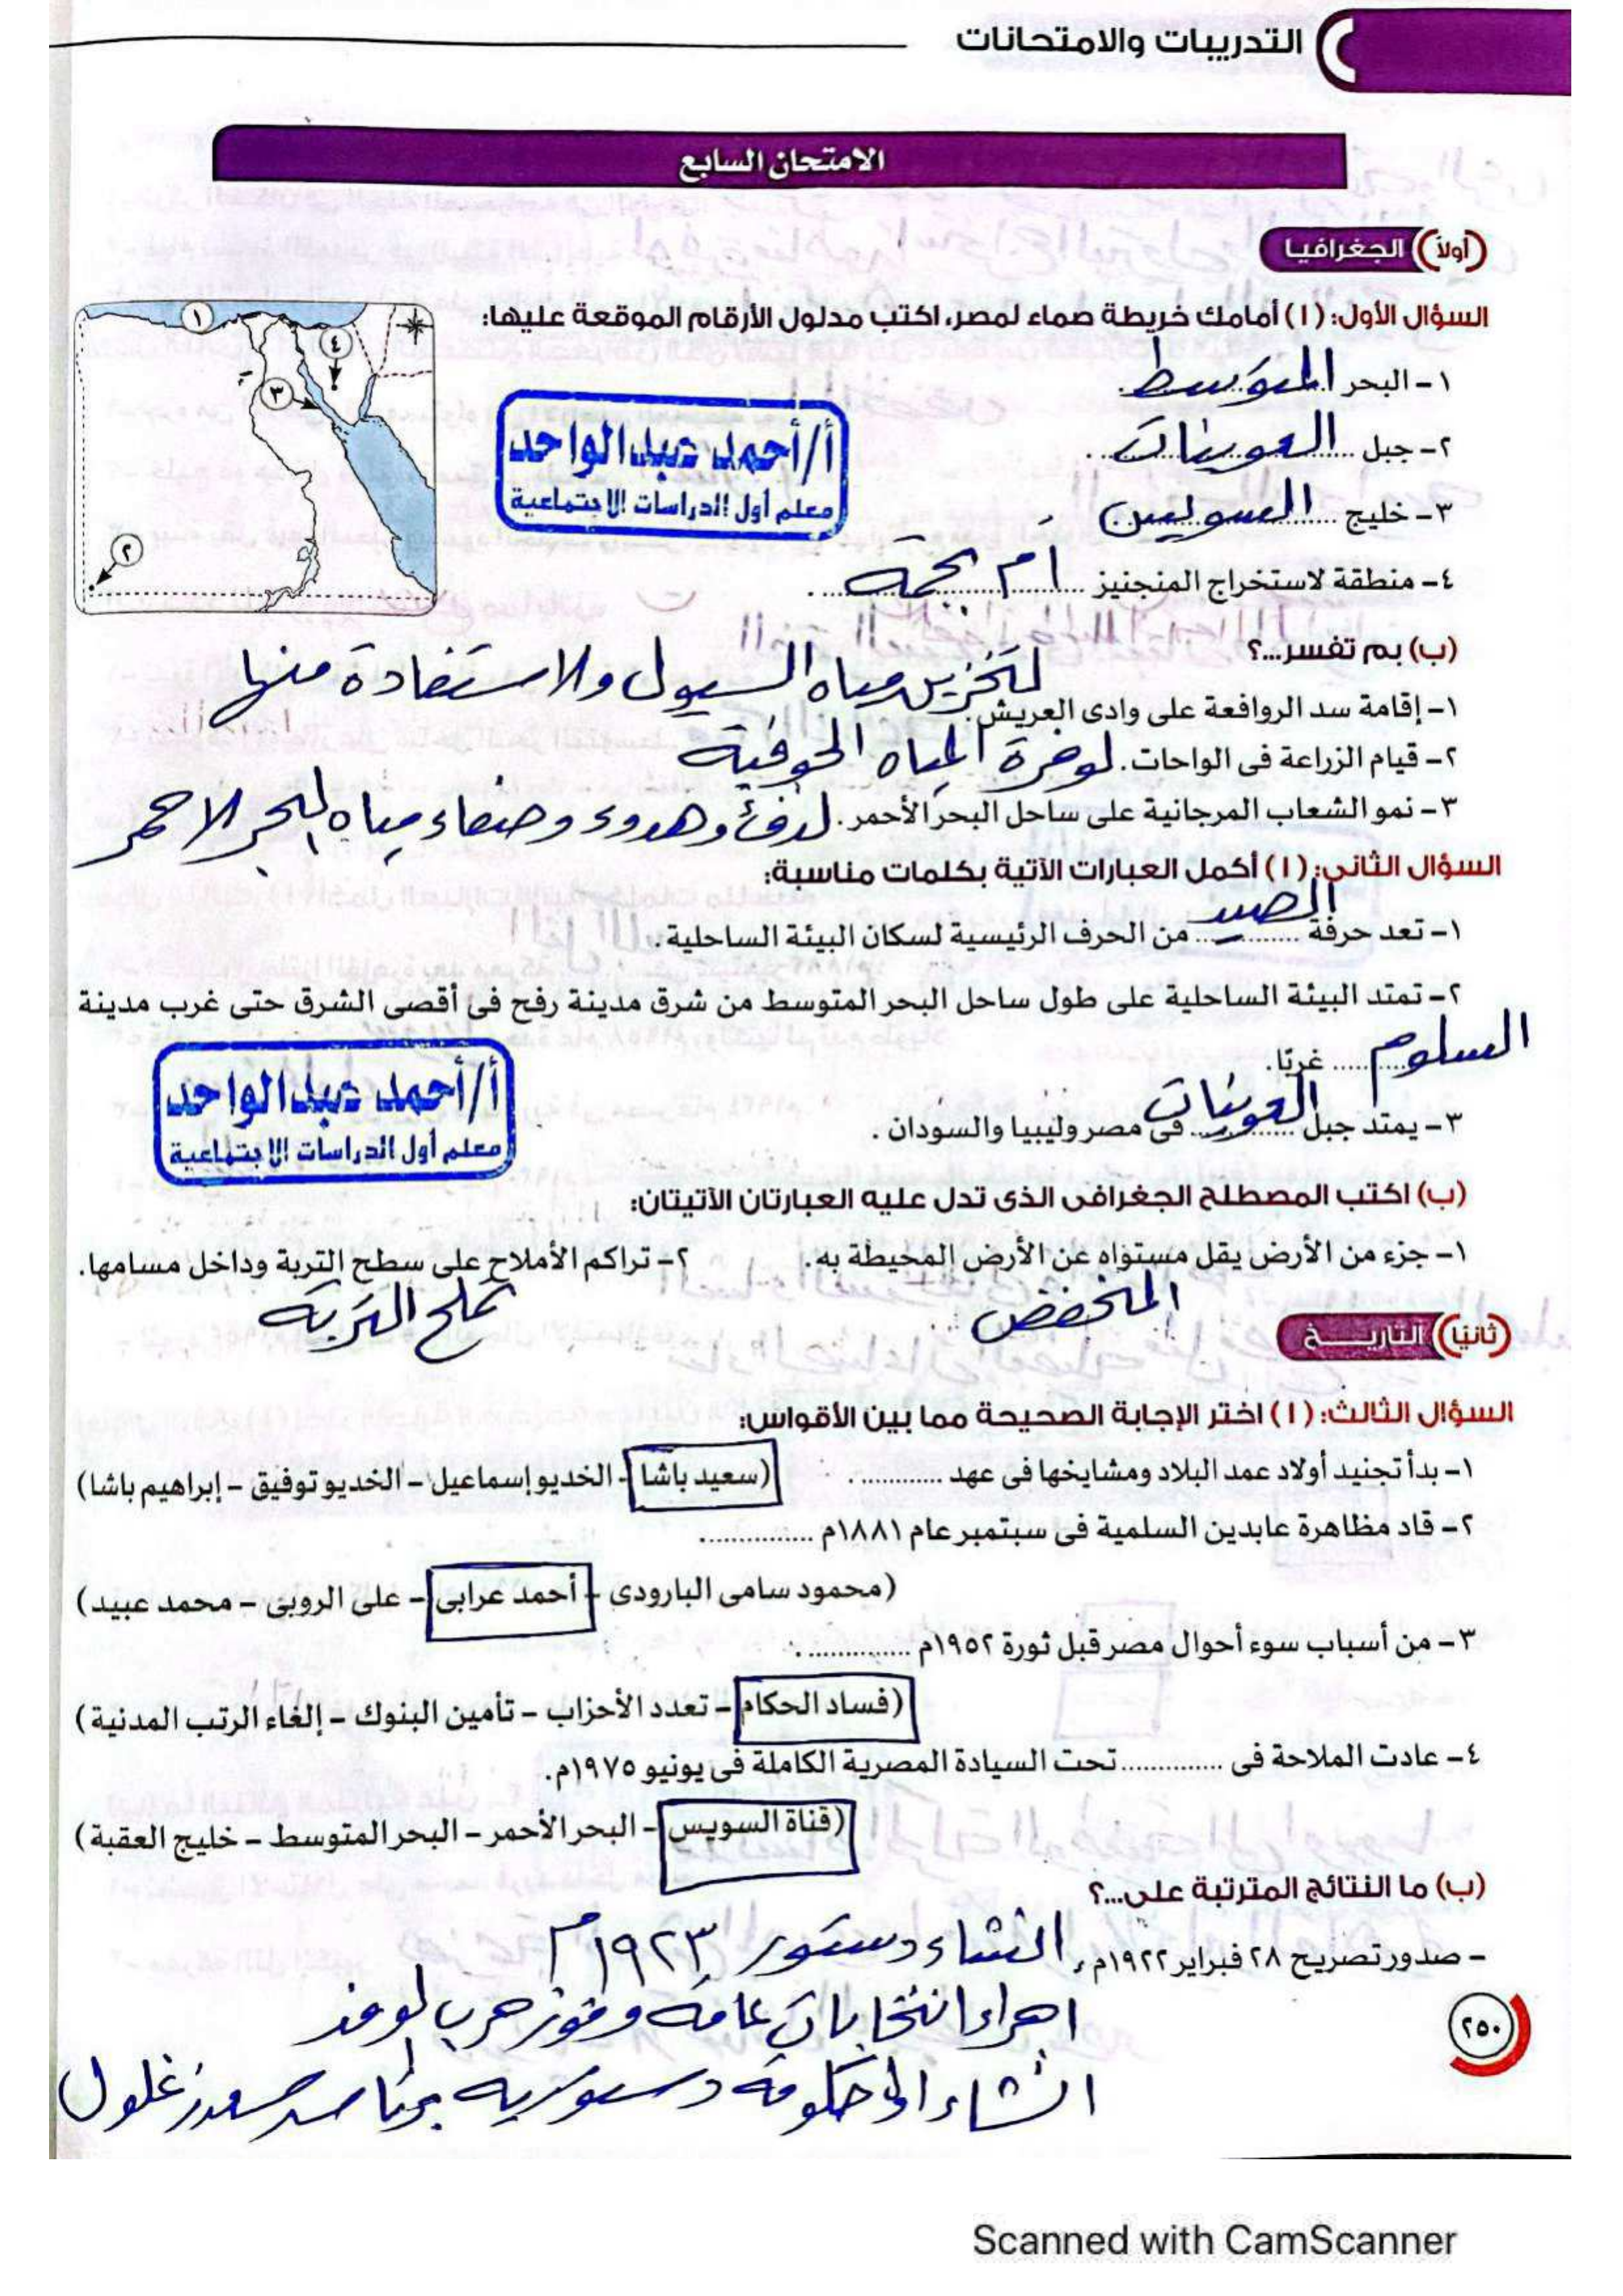 التدريبات والامتحانات
الامتحان السابع
(أولاً) الجغرافيا
السؤال الأول: (١) أمامك خريطة صماء لمصر، اكتب مدلول الأرقام الموقعة عليها:
١ ٤ ٣ ٢
١- البحر المتوسط.
٢- جبل العوينات.
٣- خليج السويس
٤- منطقة لاستخراج المنجنيز أم بجمة.
أ/أحمد عبدالواحد
معلم أول الدراسات الاجتماعية
(ب) بم تفسر...؟
١- إقامة سد الروافعة على وادى العريش. لتخزين مياه السيول والاستفادة منها
٢- قيام الزراعة فى الواحات. لوفرة المياه الجوفية
٣- نمو الشعاب المرجانية على ساحل البحر الأحمر. لدفئ وهدوء وصفاء مياه البحر الاحمر
السؤال الثانى: (١) أكمل العبارات الآتية بكلمات مناسبة:
١- تعد حرفة الصيد من الحرف الرئيسية لسكان البيئة الساحلية.
٢- تمتد البيئة الساحلية على طول ساحل البحر المتوسط من شرق مدينة رفح فى أقصى الشرق حتى غرب مدينة
السلوم غربًا.
٣- يمتد جبل العوينات فى مصر وليبيا والسودان.
أ/أحمد عبدالواحد
معلم أول الدراسات الاجتماعية
(ب) اكتب المصطلح الجغرافى الذى تدل عليه العبارتان الآتيتان:
١- جزء من الأرض يقل مستواه عن الأرض المحيطة به. ٢- تراكم الأملاح على سطح التربة وداخل مسامها.
المنخفض تملح التربة
(ثانيًا) التاريخ
السؤال الثالث: (١) اختر الإجابة الصحيحة مما بين الأقواس:
١- بدأ تجنيد أولاد عمد البلاد ومشايخها فى عهد ............ (سعيد باشا - الخديو إسماعيل - الخديو توفيق - إبراهيم باشا)
٢- قاد مظاهرة عابدين السلمية فى سبتمبر عام ١٨٨١م ..............
(محمود سامى البارودى - أحمد عرابى - على الروبى - محمد عبيد)
٣- من أسباب سوء أحوال مصر قبل ثورة ١٩٥٢م ..............
(فساد الحكام - تعدد الأحزاب - تأمين البنوك - إلغاء الرتب المدنية)
٤- عادت الملاحة فى .............. تحت السيادة المصرية الكاملة فى يونيو ١٩٧٥م.
(قناة السويس - البحر الأحمر - البحر المتوسط - خليج العقبة)
(ب) ما النتائج المترتبة على...؟
- صدور تصريح ٢٨ فبراير ١٩٢٢م. انشاء دستور ١٩٢٣م
اجراء انتخابات عامة وفوز حزب لوفد
انشاء اول حكومة دستورية برئاسة سعد زغلول
٢٥٠
Scanned with CamScanner